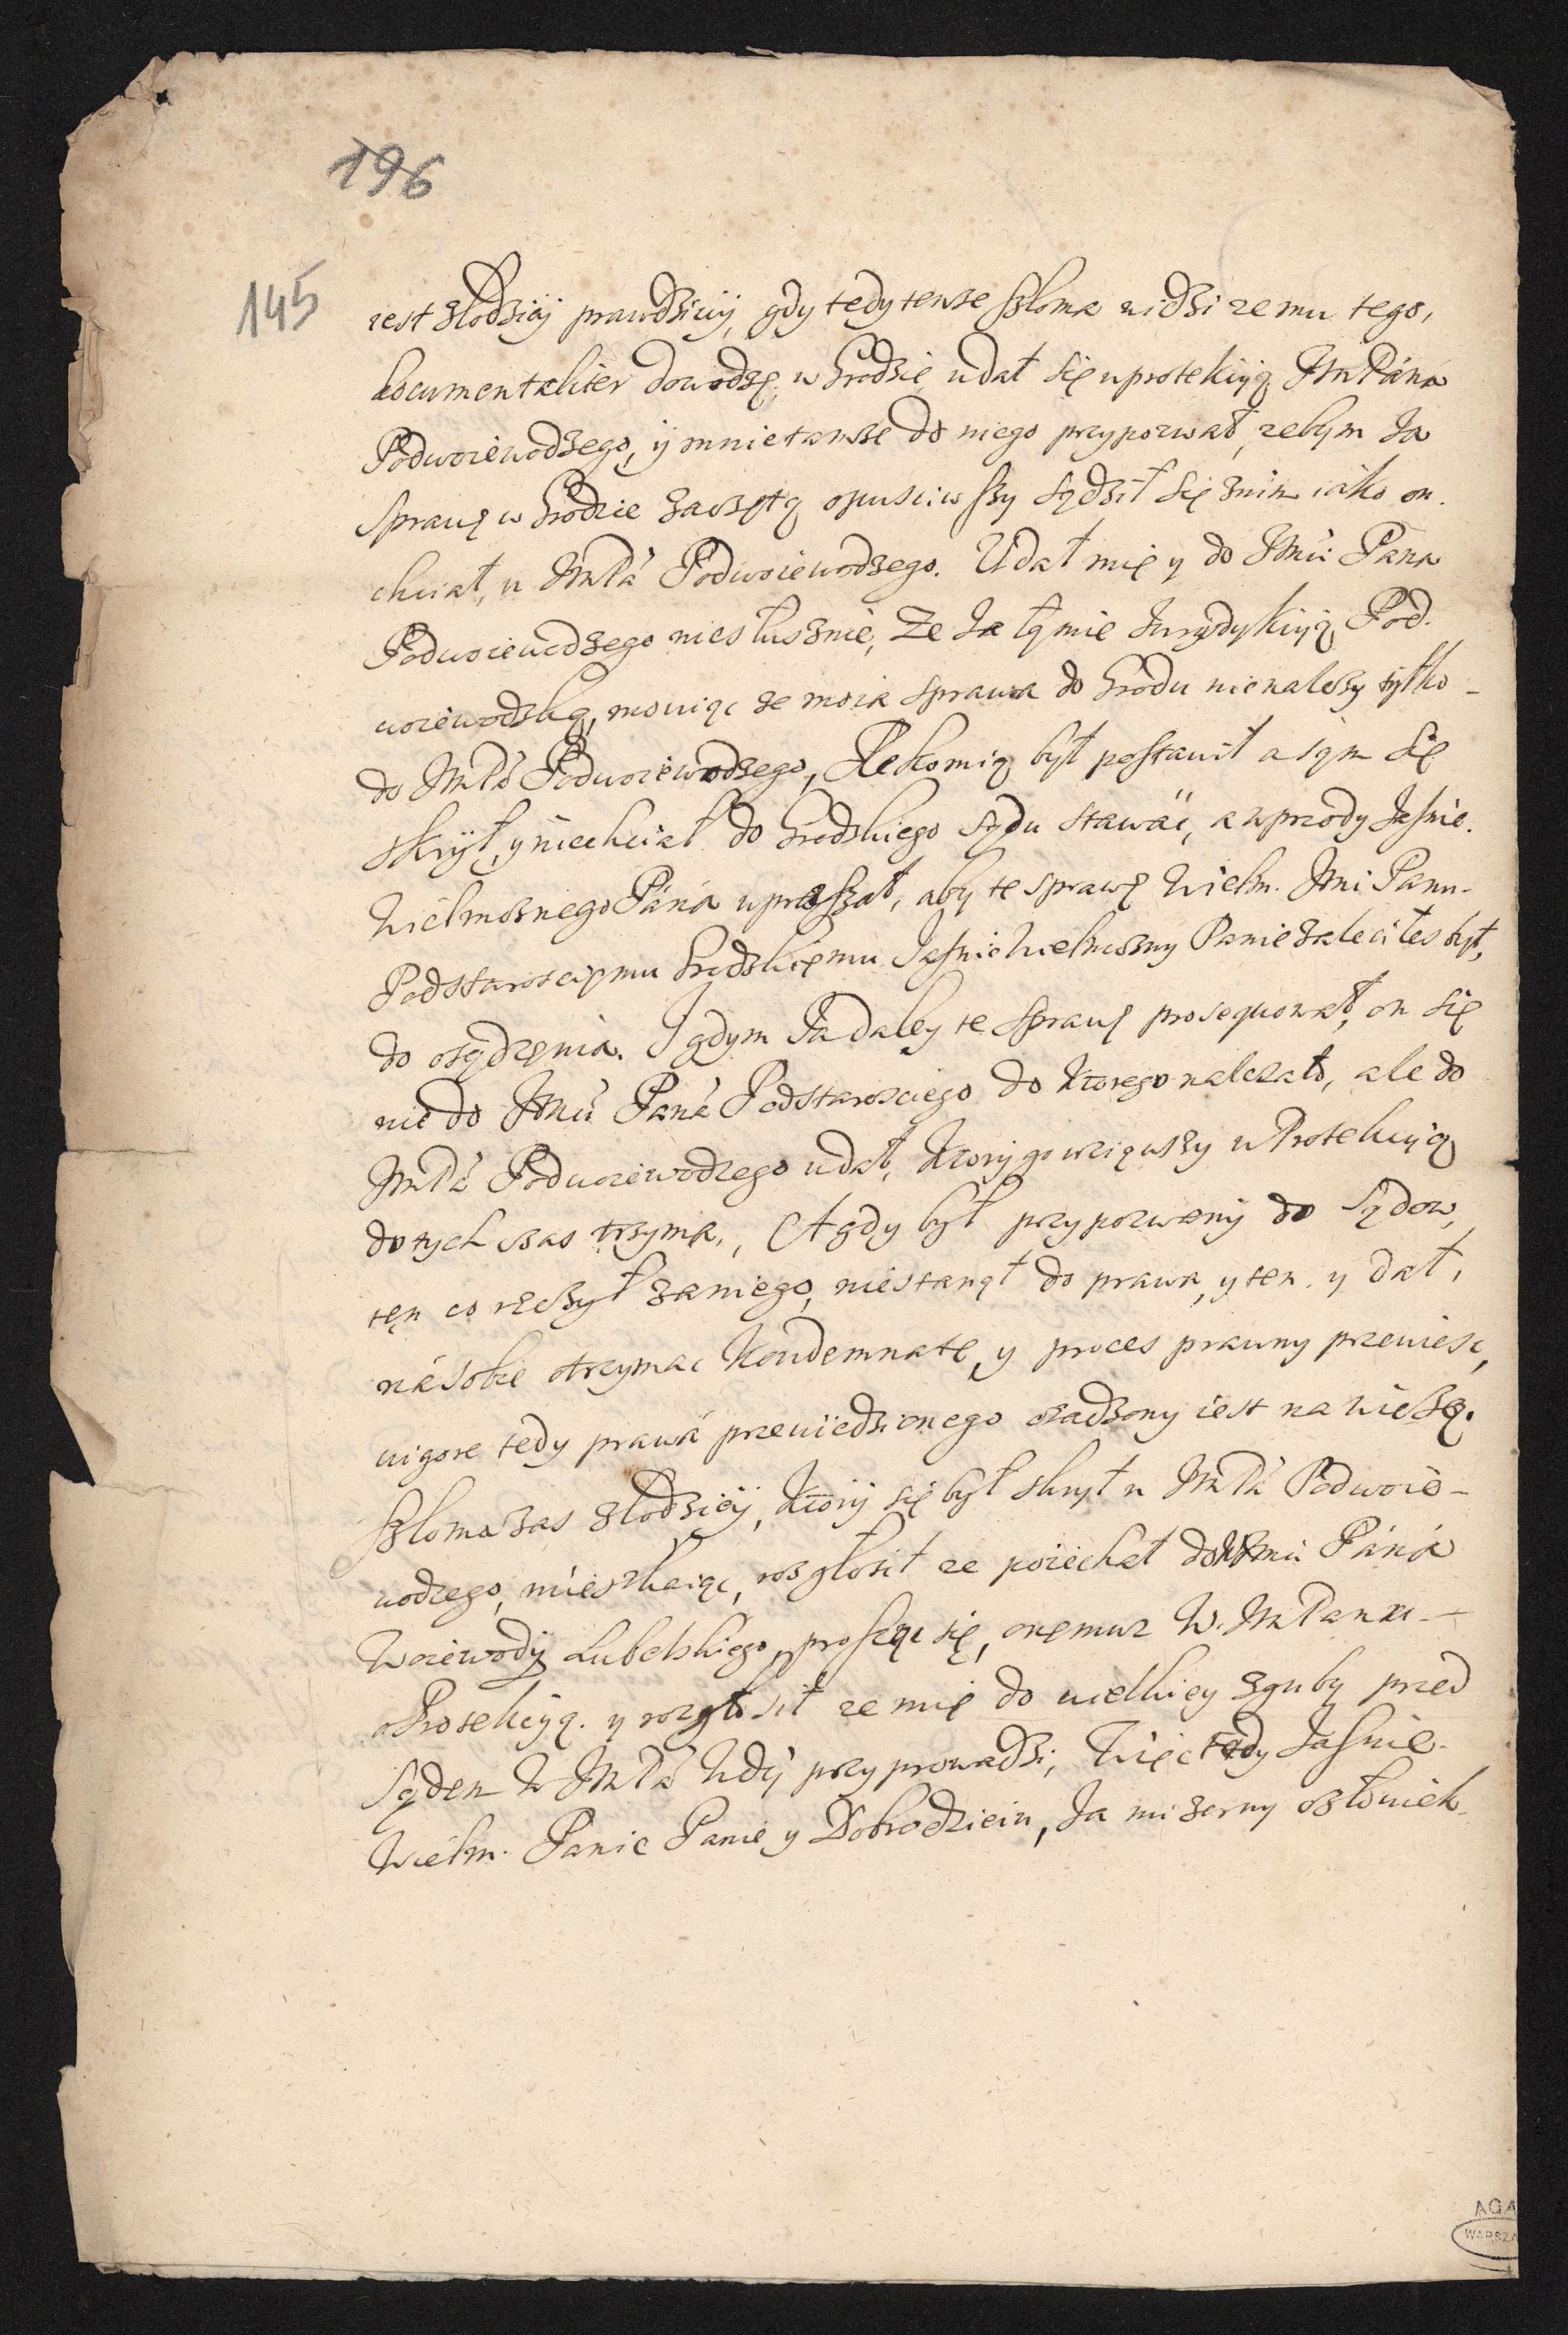 196
145
iest złodziey prawdziwy, gdy tedy tenze Szloma widzi ze mu tego,
documentaliter dowodzę w Grodzie, udał się w protekcyią ImPána
Podwoiewodzego, ÿ mnie tamze do niego przypozwał, zebym Ia
Sprawę w Grodzie zaczętą opusciwszy sądził się z nim iáko on
chciał, u ImPá Podwoiewodzego. Udał mię y do Imci Pana
Podwoiewodzego niesłusznie, Ze Ia łąmie Iurizdykciyą Pod.
woiewodzką, mowiąc ze moia sprawa do Grodu nienalezy tylko -
do ImPá Podwoiewodzego, Rękomią był postawił a sąm się
skrył, y niechciał do Grodskiego sądu stawáć, a wprzody Jasnie.
Wielmoznego Páná upraszał, aby te sprawę Wielm. Imci Panu -
Podstarosciemu Grodskiemu Jasnie Wielmozny Panie zaleciłes był,
do osądzęnia. I gdym Ia daley te Sprawę prosequował, on się
nie do Imci Paná Podstarosciego do ktorego nalezało, ale do
ImPá Podwoiewodzego udał, ktory go wziąwszy w Protekcyią
do tych czas trzyma., A gdy był przypozwany do Sądow,
tęn co ręczył za niego, niestanął do prawa, y ten y dał,
ná sobie otrzymac Kondemnate, y proces prawny przewiesc,
vigore tedy prawá przewiedzionego osadzony iest na wiezę.
Szloma zas złodziey, ktory się był skrył u ImPá Podwoie -
wodzego, mieszkaiąc, rozgłosił ze poiechał do Imci Páná
Woiewody Lubelskiego, prosząc się, onemuz W. ImPana -
o Protekcyią. y rozgłosił ze mię do wielkiey zguby przed
Sądem W ImPá Wdÿ przyprowadzi, Więc tedy Jasnie -
Wielm. Panie Panie y Dobrodzieiu, Ia mizerny człowiek
AGA
WARSZA